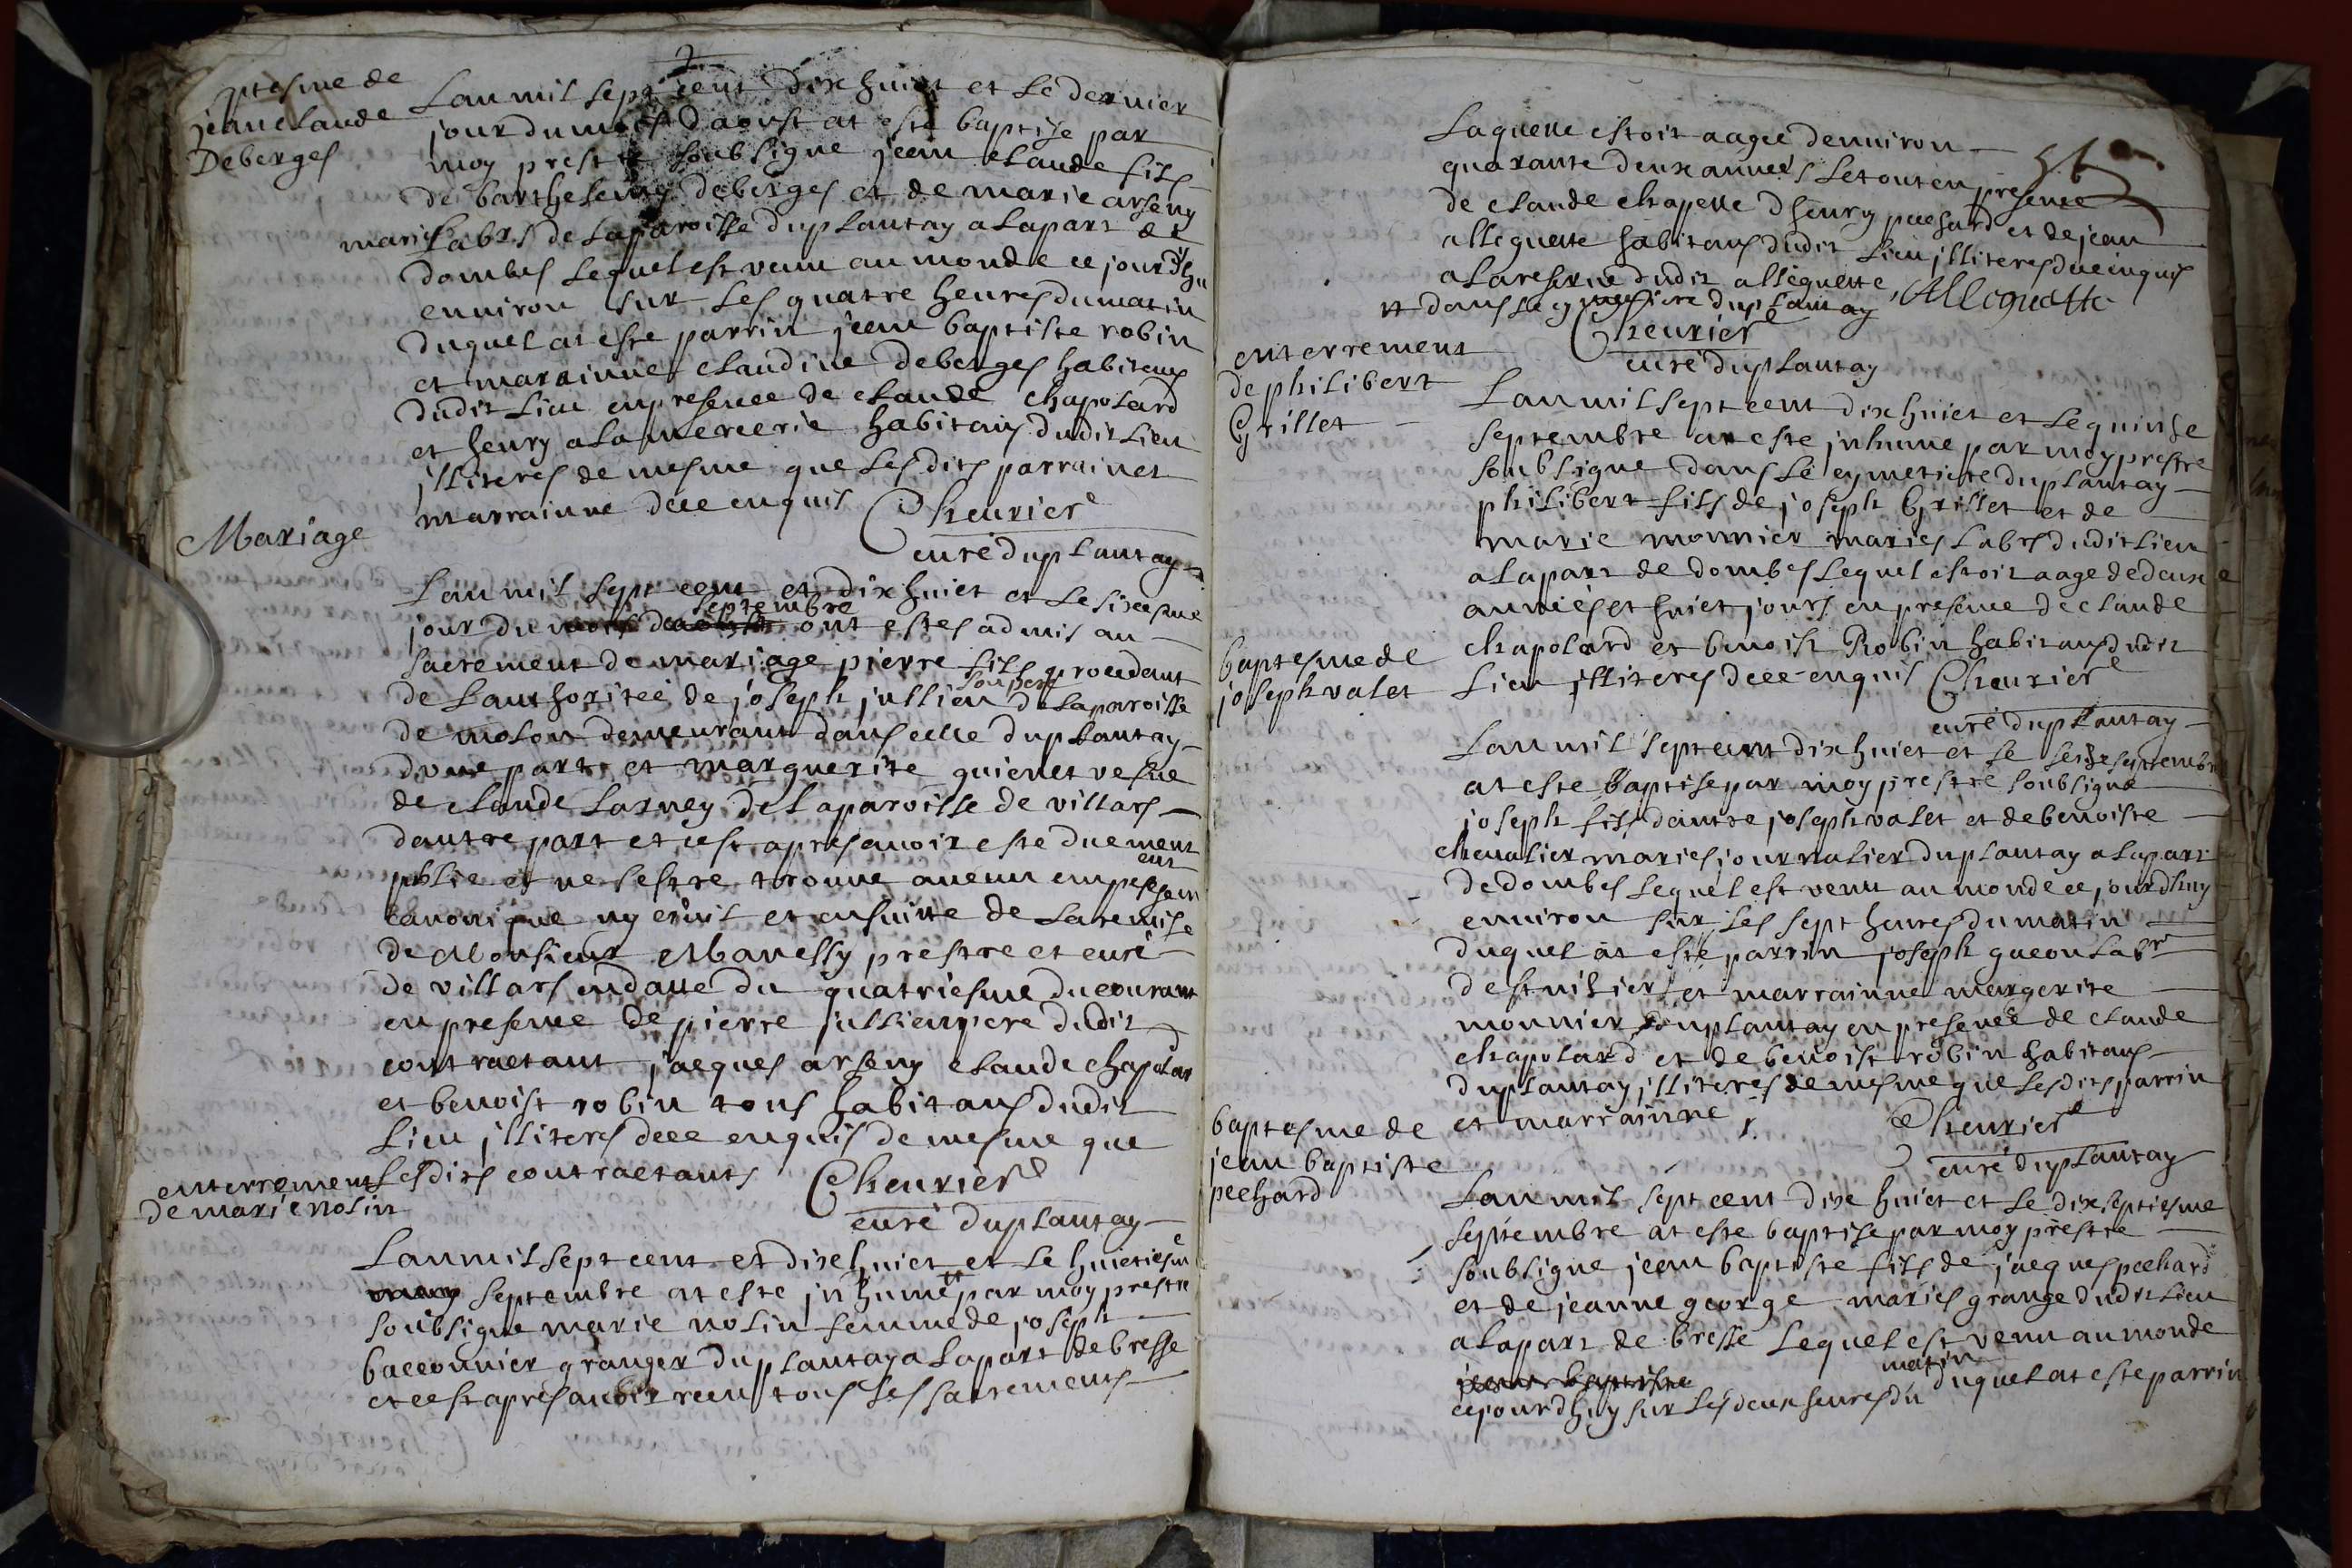 ptesme de
jean claude
Deberges
Lan mil sept cent dix huict et le dernier
jour du mois daoust at este baptise par
moy prestre soubsigne jean claude fils
de barthelemy deberges et de marie arseny
maries labrs de la paroisse du plantay a la part de
dombes lequel est venu au monde ce jourdhu
environ sur les quatre heures du matin
duquel at este parrin jean baptiste robin
et marainne claudine deberges habitans
dudit lieu en presence de claude chapolard
et henry alamercerie habitans dudit lieu
jlliteres de mesme que lesdits parrain et
marrainne de ce enquis Cheurier
curé du plantay
Mariage
Lan mil sept cent et dix huict et le sixiesme
jour du mois daoust septembre ont estes admis au
sacrement de mariage pierre fils procedant
de lauthoriteé de joseph jullien son pere de la paroisse
de molon demeurant dans celle du plantay
dune part et marguerite guienet vefue
de claude larney de la paroisse de villars
dautre part et cest apres auoir este duement
publie et ne sestre trouue aucun empeschement
canonique ny ciuil et ensuitte de la remise
de Monsieur Manessy prestre et curé
de villars en datte du quatriesme du courant
en presence de pierre jullien frere dudit
contractant jacques arseny claude chapolar
et benoist robin tous habitans dudit
lieu jlliteres de ce enquis de mesme que
lesdits contractants Cheurier
curé du plantay
enterrement
de marie nolin
Lan mil sept cent et dix huict et le huictiesme
septembre at este jnhumeé par moy prestre
soubsigne marie nolin femme de joseph
bacconnier granger du plantay a la part de bresse
et cest apres auoir receu tous les sacremens
56
Laquelle estoit aageé denuiron
quarante deux anneés le tout en presence
de claude chapelle dhenry pechard et de jean
alleguette habitans dudit lieu jlliteres de ce inquis
a la reserue dudit alleguette, Alleguette
et dans le cymetiere du plantay
Cheurier
curé du plantay
enterrement
de philibert
Grillet
Lan mil sept cent dix huict et le quinse
septembre at este jnhume par moy prestre
soubsigne dans le cymetiere du plantay
philibert fils de joseph Grillet et de
marie monnier maries labrs dudit lieu
a la part de dombes lequel estoit aage de deux
anneés et huict jours en presence de claude
chapolard et benoist Robin habitans dudit
lieu jlliteres de ce enquis Cheurier
curé du plantay
baptesme de
joseph valet
Lan mil sept cent dix huict et le seize septembre
at este baptise par moy prestre soubsigne
joseph fils dautre joseph valet et de benoiste
cheualier maries journalier du plantay a la part
de dombes lequel est venu au monde ce jourdhuy
enuiron sur les sept heures du matin
duquel at este parrin joseph gueon labr
de st nizier et marrainne margerite
monnier du plantay en presence de claude
chapolard et de benoist robin habitans
du plantay jlliteres de mesme que lesdits parrin
et marrainne Cheurier
curé du plantay
baptesme de
jean baptiste
pechard
Lan mil sept cent dix huict et le dixseptiesme
septembre at este baptise par moy prestre
soubsigne jean baptiste fils de jacques pechard
et de jeanne george maries grange dudit lieu
a la part de bresse lequel est venu au monde
jean baptiste
cejourdhuy sur les deux heures du matin duquel at este parrin